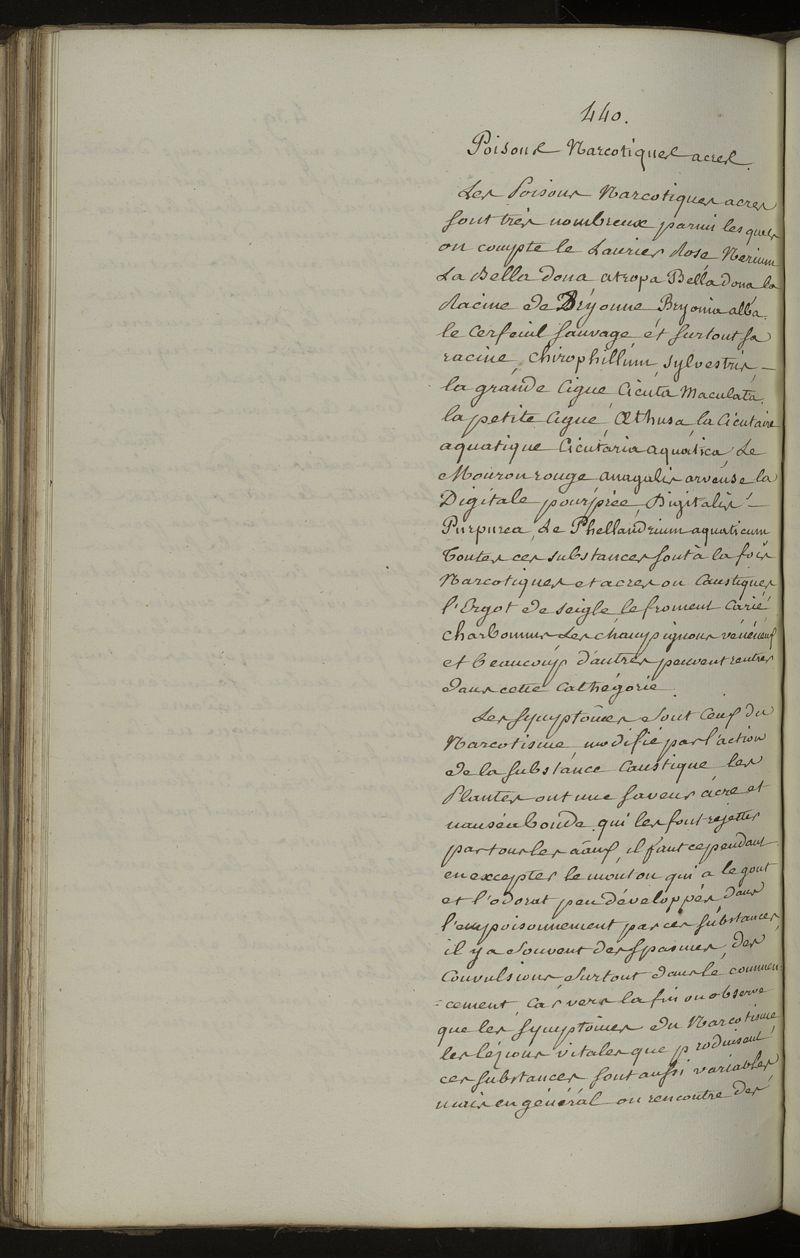 440.
Poisons Narcotiques acres.
Les Poisons Narcotiques acres
sont très nombreux parmi lesquels
on compte le Laurier Rose Nerium
La Bella dona atropa Bella Dona la
Racine de Bryonne Bryonia alba.
le Cerfeuil sauvage et surtout sa
racine, Chirophillum, sylvestris —
la grande Cigue Cicuta Maculata
la petite Cigue, Œthusa la Cicutaire
aquatique Cicutaria aquatica Le
Mouron rouge anagalis arvense la
Digitale pourprée Digitalis —
Purpurea, Le Phellandrium aquaticum
Toutes ces substances sont à la fois
Narcotiques et acres ou Caustiques
l'Ergot de seigle le froment Carié
charbonnus Les champignons vénéneux
et beaucoup d'autres peuvent rentrer
dans cette Cathégorie.
Les symptômes sont Ceux du
Narcotisme modifié par l'action
de la substance Caustique les
Plantes ont une saveur acre et
nauséabonde qui les font rejetter
par tous les aãux, il faut cependant
en excepter le mouton qui a le gout
et l'odorat peu développés, dans
l'empoisonnement par ces substances,
il y a souvent des spasmes, des
Convulsions surtout dans le commen
=cement, Car vers la fin on observe
que les symptômes du Narcotisme
les lézions vitales que produisent
ces substances sont aussi variables
mais en général on rencontre des